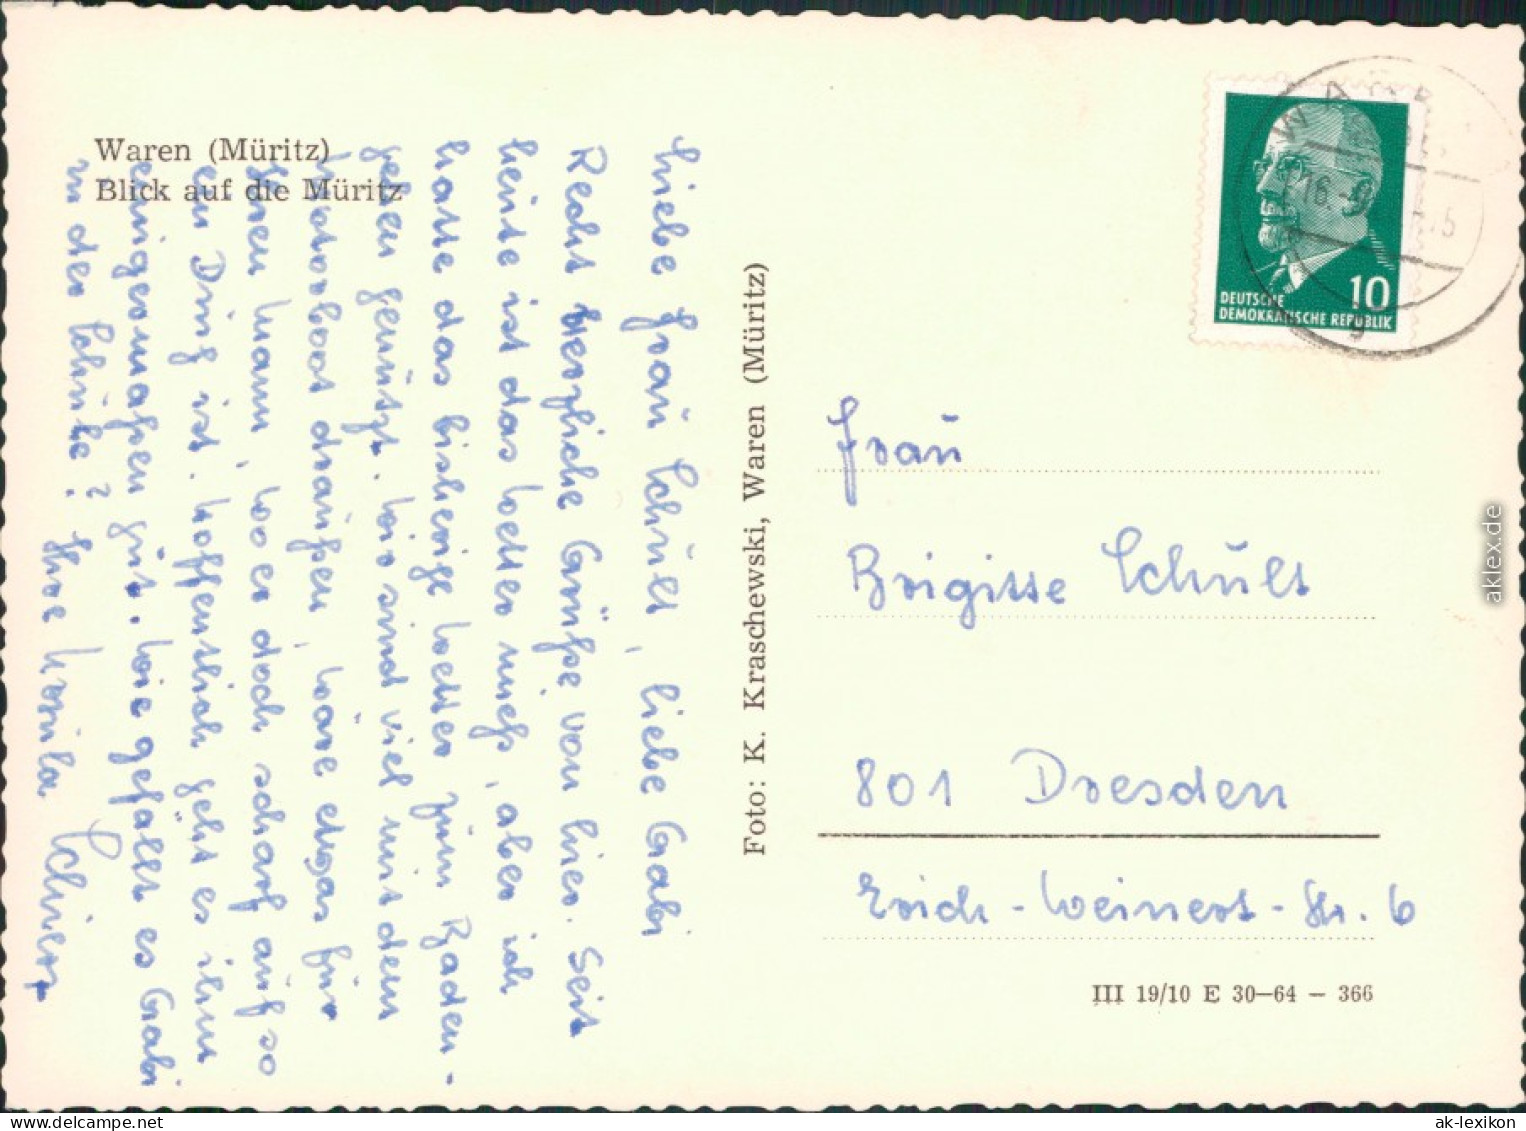 Waren (Müritz)
Blick auf die Müritz
Liebe Frau Schult, liebe Gabi
Recht herzliche Grüße von hier. Seit
heute ist das Wetter mieß, aber ich
hatte das bisherige Wetter zum Baden
geben genützt. Wir sind viel mit dem
Motorboot draußen, wäre etwas für
Ihren Mann, wo er doch scharf auf so
ein Ding ist. Hoffentlich geht es ihm
einigermaßen gut. Wie gefällt es Gabi
in der Schule? Ihre
Foto: K. Kraschewski, Waren (Müritz)
DEUTSCHE
DEMOKRATISCHE REPUBLIK
10
WAREN
16.
Frau
Brigitte Schult
801 Dresden
Erich-Weinert-Str. 6
III 19/10 E 30—64 – 366
aklex.de
delcampe.net
ak-lexikon